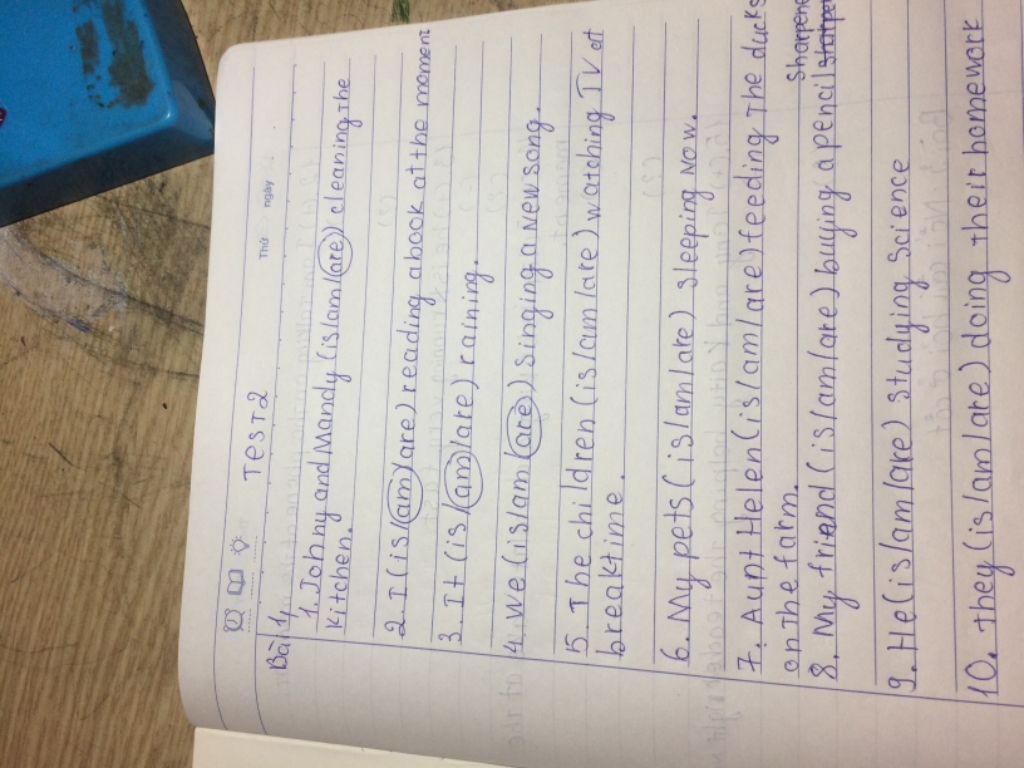 Thứ ngày
TEST2
Bài 1,
1. Johny and Mandy (is/am/are) cleaning the
kitchen.
2. I (is/am/are) reading a book at the moment
3. It (is/am/are) raining.
4. We (is/am/are) singing a new song.
5. The children (is/am/are) watching TV at
breaktime.
6. My pets (is/am/are) sleeping now.
7. Aunt Helen (is/am/are) feeding the ducks
on the farm.
8. My friend (is/am/are) buying a pencil sharpene
9. He (is/am/are) studying Science
10. they (is/am/are) doing their homework